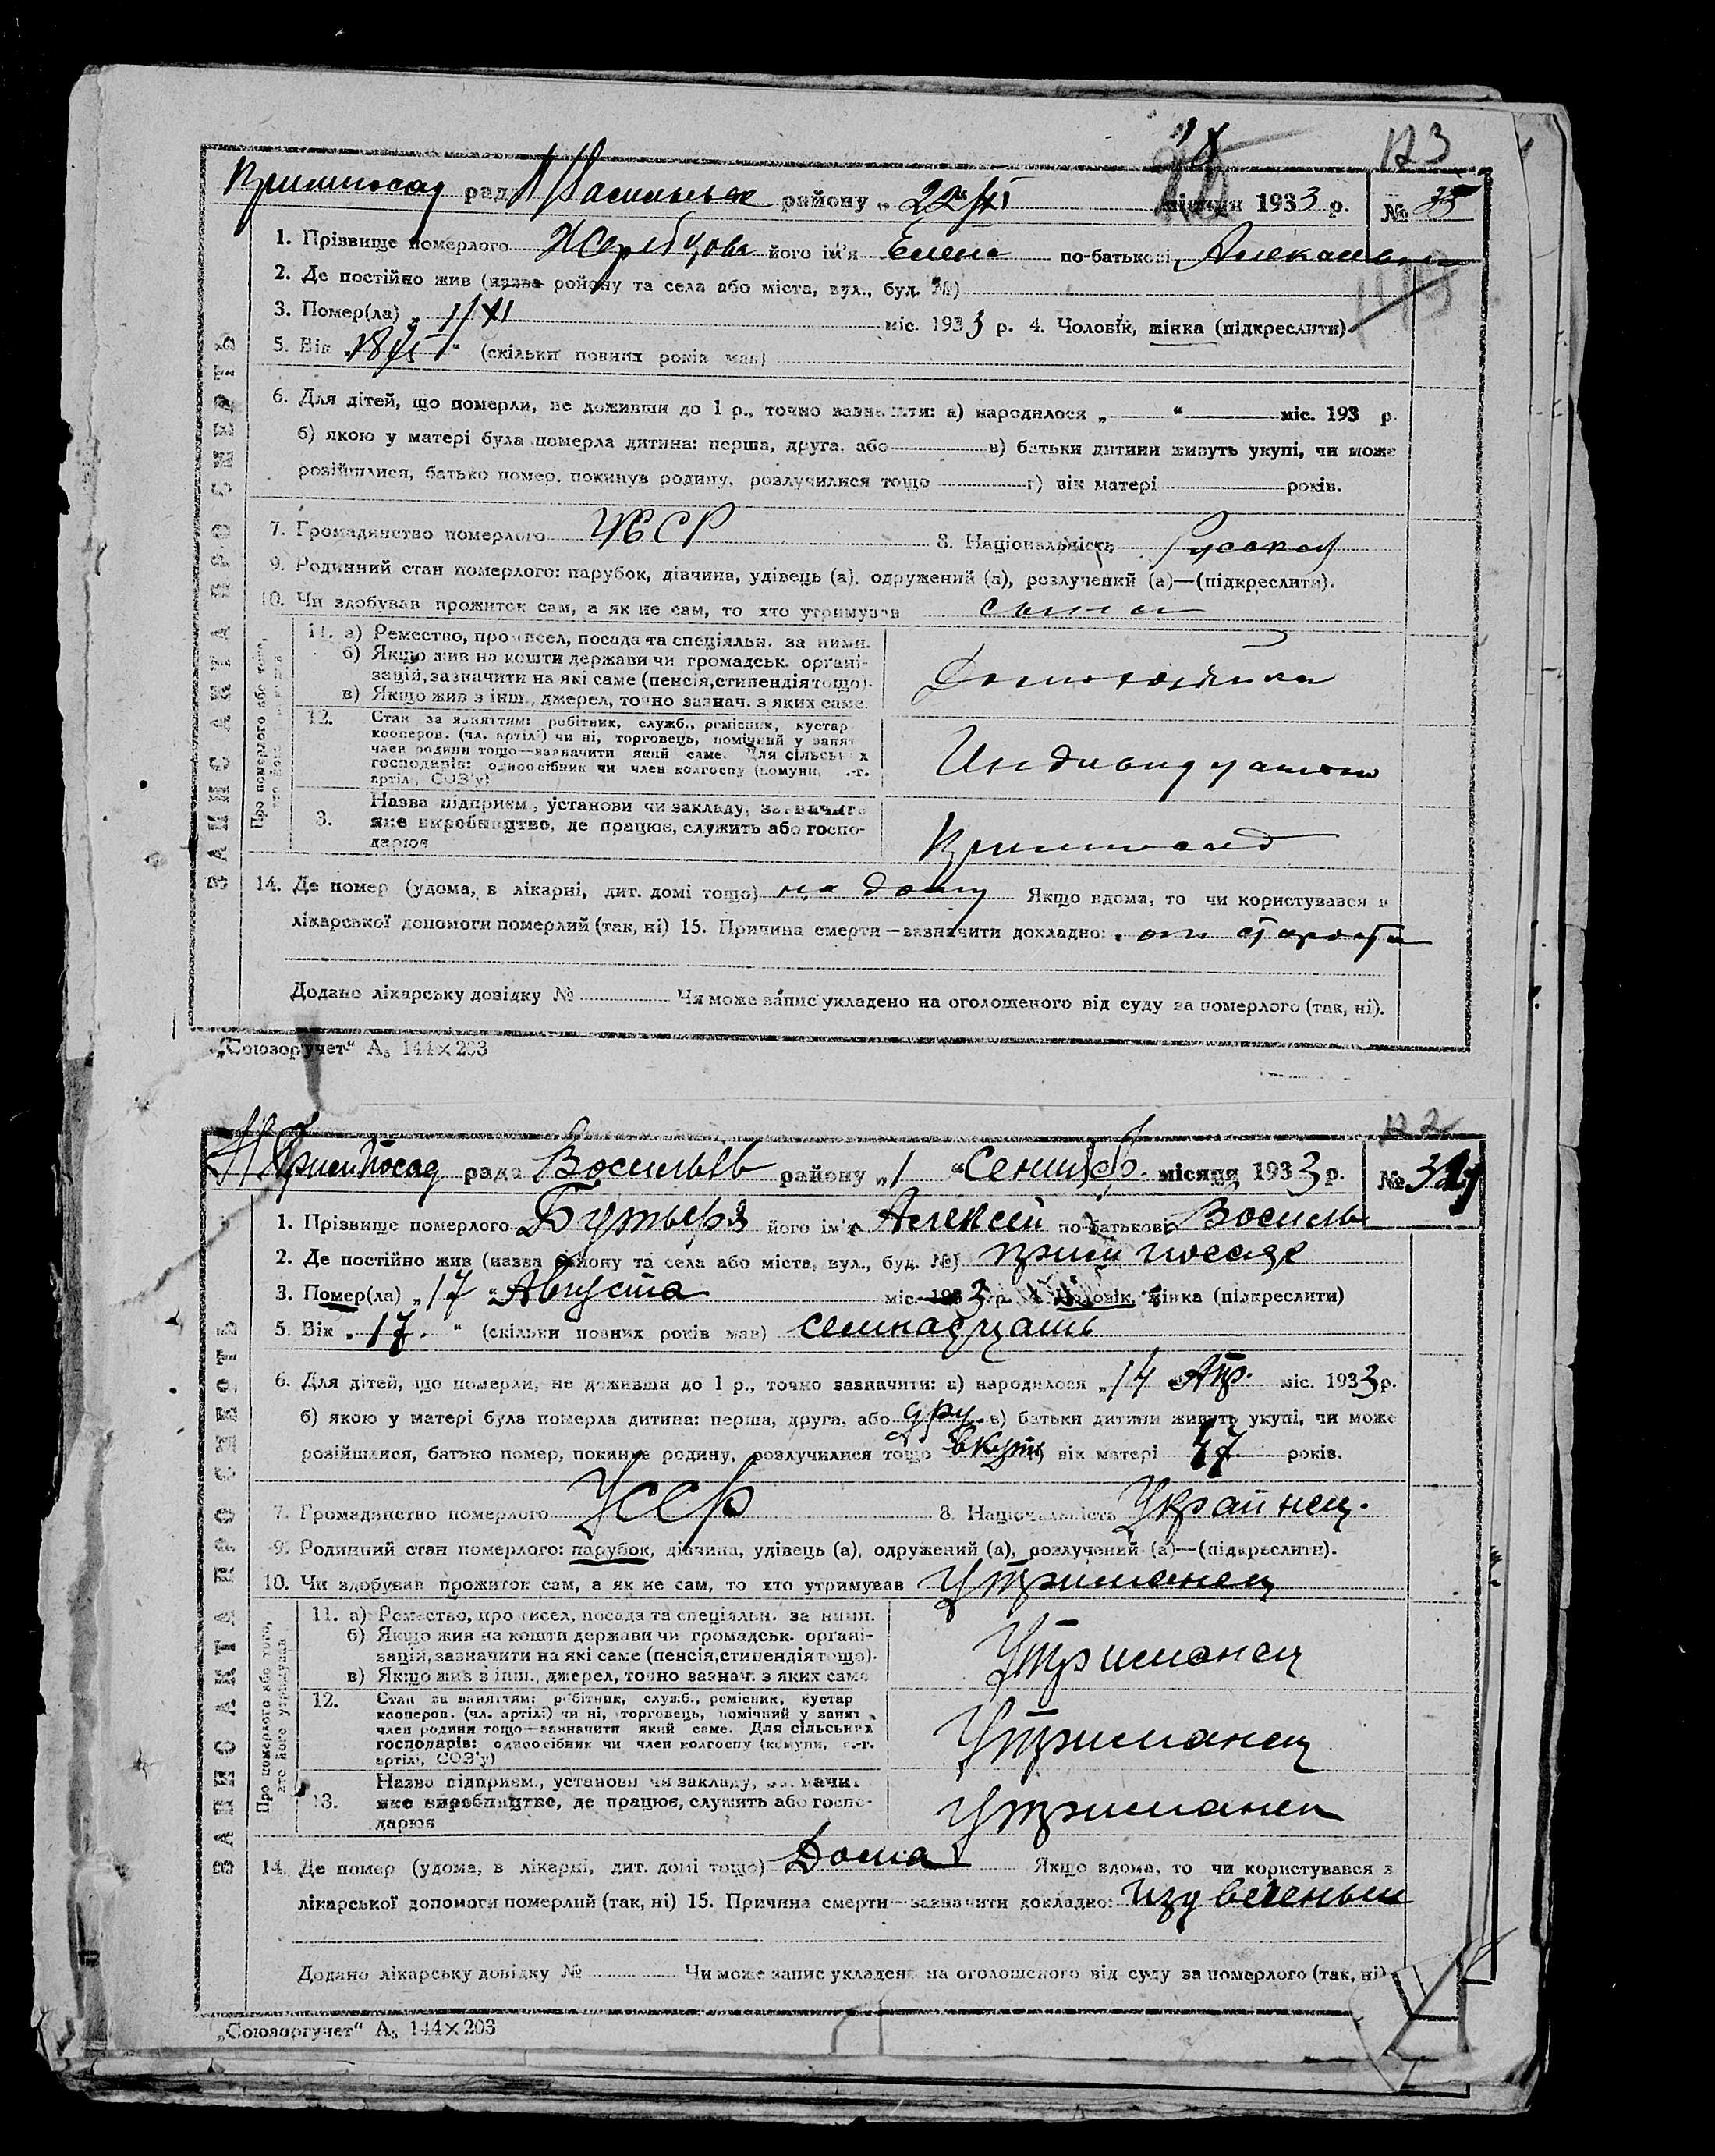 123
Примпосад рада Васильевк району „ 22/XI місяця 1933 р. № 35
1. Прізвище померлого Жеребцова його ім'я Елена по-батькові
2. Де постійно жив (назва району та села або міста, вул., буд. №)
3. Помер(ла) „ 1/XI міс. 1933 р. 4. Чоловік, жінка (підкреслити)
5. Вік „ “ (скільки повних років мав)
6. Для дітей, що померли, не доживши до 1 р., точно зазначити: а) народилося „ “ міс. 193 р.
б) якою у матері була померла дитина: перша, друга, або в) батьки дитини живуть укупі, чи може
розійшлися, батько помер, покинув родину, розлучилися тощо г) вік матері років.
7. Громадянство померлого УССР 8. Національність Русская
9. Родинний стан померлого: парубок, дівчина, удівець (а), одружений (а), розлучений (а)—(підкреслити).
10. Чи здобував прожиток сам, а як не сам, то хто утримував
11. а) Ремество, промисел, посада та спеціяльн. за ними.
б) Якщо жив на кошти держави чи громадськ. органі-
зацій, зазначити на які саме (пенсія, стипендія тощо).
в) Якщо жив з інш., джерел, точно зазнач. з яких саме.
Домохозяйка
12. Стан за заняттям: робітник, служб., ремісник, кустар
кооперов. (чл. артілі) чи ні, торговець, помічний у занят
член родини тощо—зазначити який саме. Для сільських
господарів: одноосібник чи член колгоспу (комуни, с.-г.
артілі, СОЗ'у)
13. Назва підприєм., установи чи закладу, зазначити
яке виробництво, де працює, служить або госпо-
дарює
Примпосад
14. Де помер (удома, в лікарні, дит. домі тощо) на дому Якщо вдома, то чи користувався з
лікарської допомоги померлий (так, ні) 15. Причина смерти—зазначити докладно: от старости
Додано лікарську довідку № Чи може запис укладено на оголошеного від суду за померлого (так, ні).
ЗАПИС АКТА ПРО СМЕРТЬ
„Союзоргучет“ А₅ 144×203
122
Примпосад рада Восильев району „ 1 “ Сентяб. місяця 1933 р. №
1. Прізвище померлого його ім'я Алексей по-батькові Восиль
2. Де постійно жив (назва району та села або міста, вул., буд. №) прим посаде
3. Помер(ла) „ 17 “ Августа міс. 1933 р. 4. Чоловік, жінка (підкреслити)
5. Вік „ 17. “ (скільки повних років мав) семнадцать
6. Для дітей, що померли, не доживши до 1 р., точно зазначити: а) народилося „ 14 Апр. міс. 1933 р.
б) якою у матері була померла дитина: перша, друга, або дру в) батьки дитини живуть укупі, чи може
розійшлися, батько помер, покинув родину, розлучилися тощо вкупі г) вік матері 47 років.
7. Громадянство померлого УССР 8. Національність Украйнец.
9. Родинний стан померлого: парубок, дівчина, удівець (а), одружений (а), розлучений (а)—(підкреслити).
10. Чи здобував прожиток сам, а як не сам, то хто утримував Утриманец
11. а) Ремество, промисел, посада та спеціяльн. за ними.
б) Якщо жив на кошти держави чи громадськ. органі-
зацій, зазначити на які саме (пенсія, стипендія тощо).
в) Якщо жив з інш., джерел, точно зазнач. з яких саме
Утриманец
12. Стан за заняттям: робітник, служб., ремісник, кустар
кооперов. (чл. артілі) чи ні, торговець, помічний у занят
член родини тощо—зазначити який саме. Для сільських
господарів: одноосібник чи член колгоспу (комуни, с.-г.
артілі, СОЗ'у)
Утриманец
13. Назва підприєм., установи чи закладу, зазначити
яке виробництво, де працює, служить або госпо-
дарює
Утриманец
14. Де помер (удома, в лікарні, дит. домі тощо) Дома Якщо вдома, то чи користувався з
лікарської допомоги померлий (так, ні) 15. Причина смерти—зазначити докладно:
Додано лікарську довідку № Чи може запис укладено на оголошеного від суду за померлого (так, ні)
ЗАПИС АКТА ПРО СМЕРТЬ
Про померлого або того, хто його утримував
„Союзоргучет“ А₅ 144×203